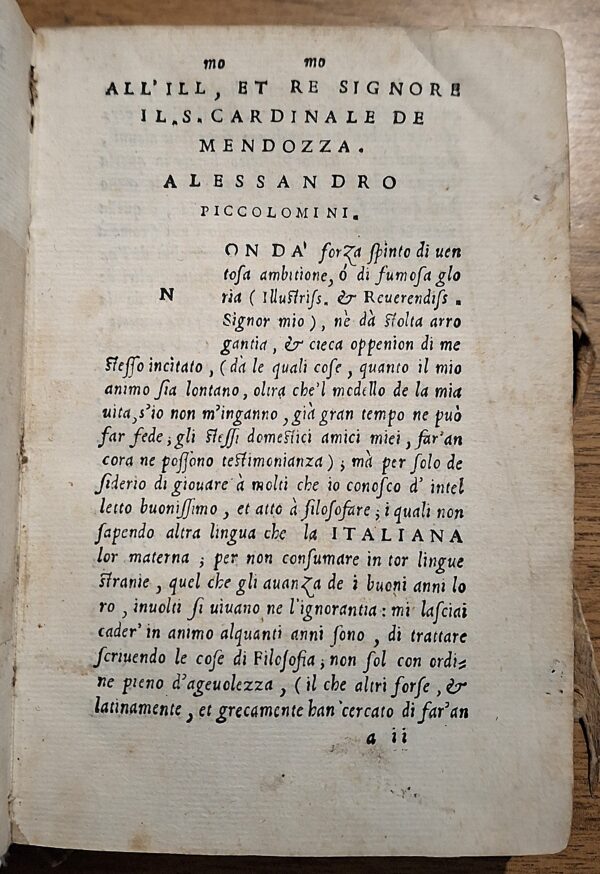 mo mo
ALL'ILL, ET RE SIGNORE
IL.S.CARDINALE DE
MENDOZZA.
ALESSANDRO
PICCOLOMINI.
N
ON DA' forza spinto di uen
tosa ambitione, ó di fumosa glo
ria ( Illustriss. & Reuerendiss .
Signor mio ), nè dà stolta arro
gantia, & cieca oppenion di me
stesso incitato, ( da le quali cose , quanto il mio
animo sia lontano, oltra che'l modello de la mia
uita, s'io non m'inganno , già gran tempo ne può
far fede ; gli stessi domestici amici miei, far'an
cora ne possono testimonianza ) ; mà per solo de
siderio di giouare à molti che io conosco d' intel
letto buonissimo , et atto à filosofare ; i quali non
sapendo altra lingua che la ITALIANA
lor materna ; per non consumare in tor lingue
stranie , quel che gli auanza de i buoni anni lo
ro , inuolti si uiuano ne l'ignorantia : mi lasciai
cader' in animo alquanti anni sono , di trattare
scriuendo le cose di Filosofia ; non sol con ordi=
ne pieno d'ageuolezza , ( il che altri forse , &
latinamente , et grecamente han'cercato di far'an
a ii